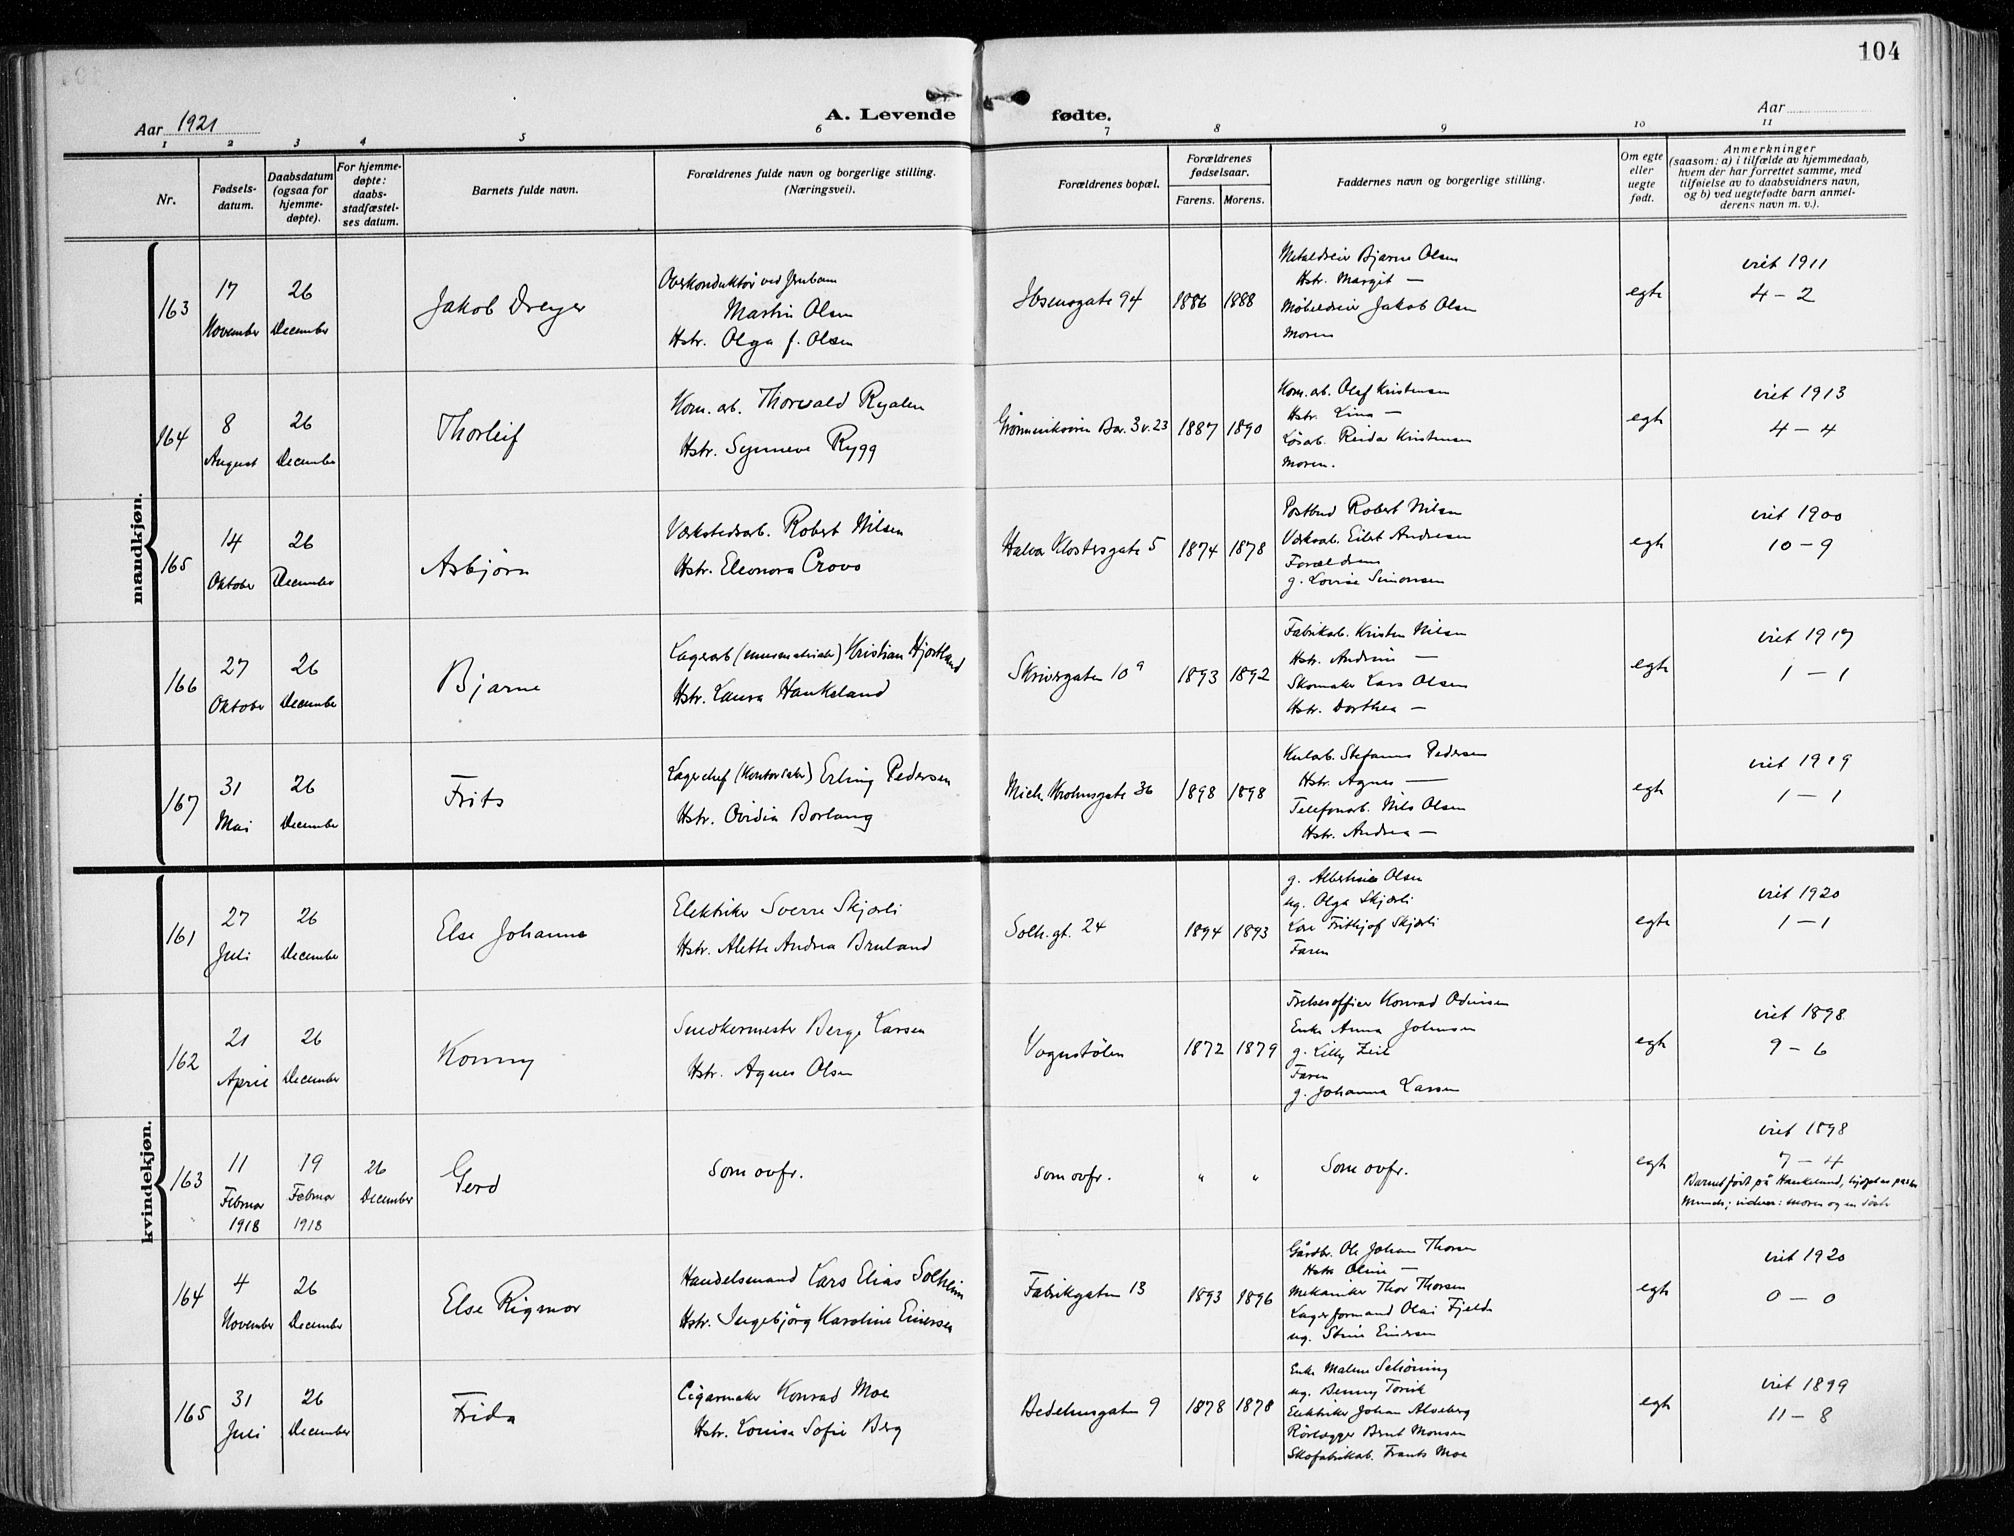 104
Aar 1921
A. Levende fødte.
Aar
1 2 3 4 5 6 7 8 9 10 11
Nr.
Fødsels-
datum.
Daabsdatum
(ogsaa for
hjemme-
døpte).
For hjemme-
døpte:
daabs-
stadfæstel-
ses datum.
Barnets fulde navn.
Forældrenes fulde navn og borgerlige stilling.
(Næringsvei).
Forældrenes bopæl.
Forældrenes
fødselsaar.
Farens. Morens.
Faddernes navn og borgerlige stilling.
Om egte
eller
uegte
født.
Anmerkninger
(saasom: a) i tilfælde av hjemmedaab,
hvem der har forrettet samme, med
tilføielse av to daabsvidners navn,
og b) ved uegtefødte barn anmel-
derens navn m. v.).
mandkjøn.
163
17
November
26
December
Jakob Dreyer
Overkonduktør ved Jernbanen
Martin Olsen
Hstr. Olga f. Olsen
Ibsensgate 94
1886
1888
Metaldreier Bjarne Olsen
Hstr. Margit —
Møbeldreier Jakob Olsen
Moren
egte
viet 1911
4 - 2
164
8
August
26
December
Thorleif
Kom. arb. Thorvald Ryalen
Hstr. Synneve Rygg
Grønneviksøren Bar. 3 v. 23
1887
1890
Kom. arb. Olaf Kristensen
Hstr. Lina —
Løsarb. Reidar Kristensen
Moren.
egte
viet 1913
4 - 4
165
14
Oktober
26
December
Asbjørn
Værkstedsarb. Robert Nilsen
Hstr. Eleonora Crovo
Halvor Klostersgate 5
1874
1878
Postbud Robert Nilsen
Værksarb. Eilert Andresen
Forældrene
g. Lovise Simonsen
egte
viet 1900
10 - 9
166
27
Oktober
26
December
Bjarne
Lagerarb Kristian Hjortland
Hstr. Laura Haukeland
Skiversgaten 10 a
1893
1892
Fabrikarb. Kristen Nilsen
Hstr. Andrine —
Skomaker Lars Olsen
Hstr. Dorthea —
egte
viet 1917
1 - 1
167
31
Mai
26
December
Frits
Lagerchef Erling Pedersen
Hstr. Ovidia Borlaug
Mich. Krohnsgate 36
1898
1898
Kularb. Stefanus Pedersen
Hstr. Agnes —
Telefonarb. Nils Olsen
Hstr. Andrea —
egte
viet 1919
1 - 1
kvindekjøn.
161
27
Juli
26
December
Else Johanne
Elektriker Sverre Skjærli
Hstr. Alette Andrea Bruland
Solh. gt. 24
1894
1893
g. Albertine Olsen
ug. Olga Skjærli
Frithjof Skjærli
Faren
egte
viet 1920
1 - 1
162
21
April
26
December
Konny
Snedkermester Berge Larsen
Hstr. Agnes Olsen
Vognstølen
1872
1879
Frelsesofficer Konrad Odinsen
Enke Anna Johnsen
g. Lilly
Faren
g. Johanna Larsen
egte
viet 1898
9 - 6
163
11
Februar
1918
19
Februar
1918
26
December
Gerd
Som ovfr.
som ovfr.
"
"
Som ovfr.
egte
viet 1898
7 - 4
Barnet født på Haukeland, hjdøpt av pastor
Munch; vidner: moren og en søster
164
4
November
26
December
Else Rigmor
Handelsmand Lars Elias Solheim
Hstr. Ingebjörg Karoline Einersen
Fabrikgaten 13
1893
1896
Gårdbr. Ole Johan Thorsen
Hstr Oline —
Mekaniker Thor Thorsen
Lagerformand Olai Fjelde
ug. Stine Einersen
egte
viet 1920
0 - 0
165
31
Juli
26
December
Frida
Cigarmaker Konrad Moe
Hstr. Louise Sofie Berg
Bedehusgaten 9
1878
1878
Enke Malene Schöning
ug. Benny Torvik
Elektriker Johan Alveberg
Rörlægger Bernt Monsen
Skofabrikarb. Frants Moe
egte
viet 1899
11 - 8